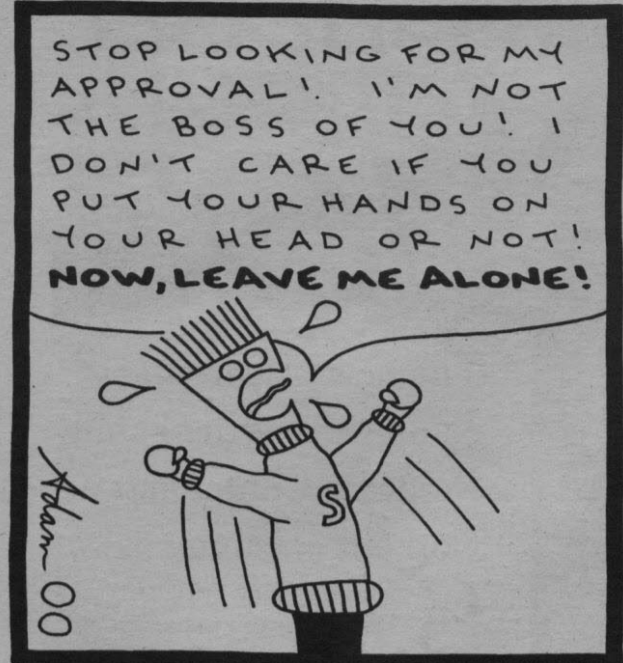 STOP LOOKING FOR MY
APPROVAL! I'M NOT
THE BOSS OF YOU! I
DON'T CARE IF YOU
PUT YOUR HANDS ON
YOUR HEAD OR NOT!
NOW, LEAVE ME ALONE!
S
Adam 00